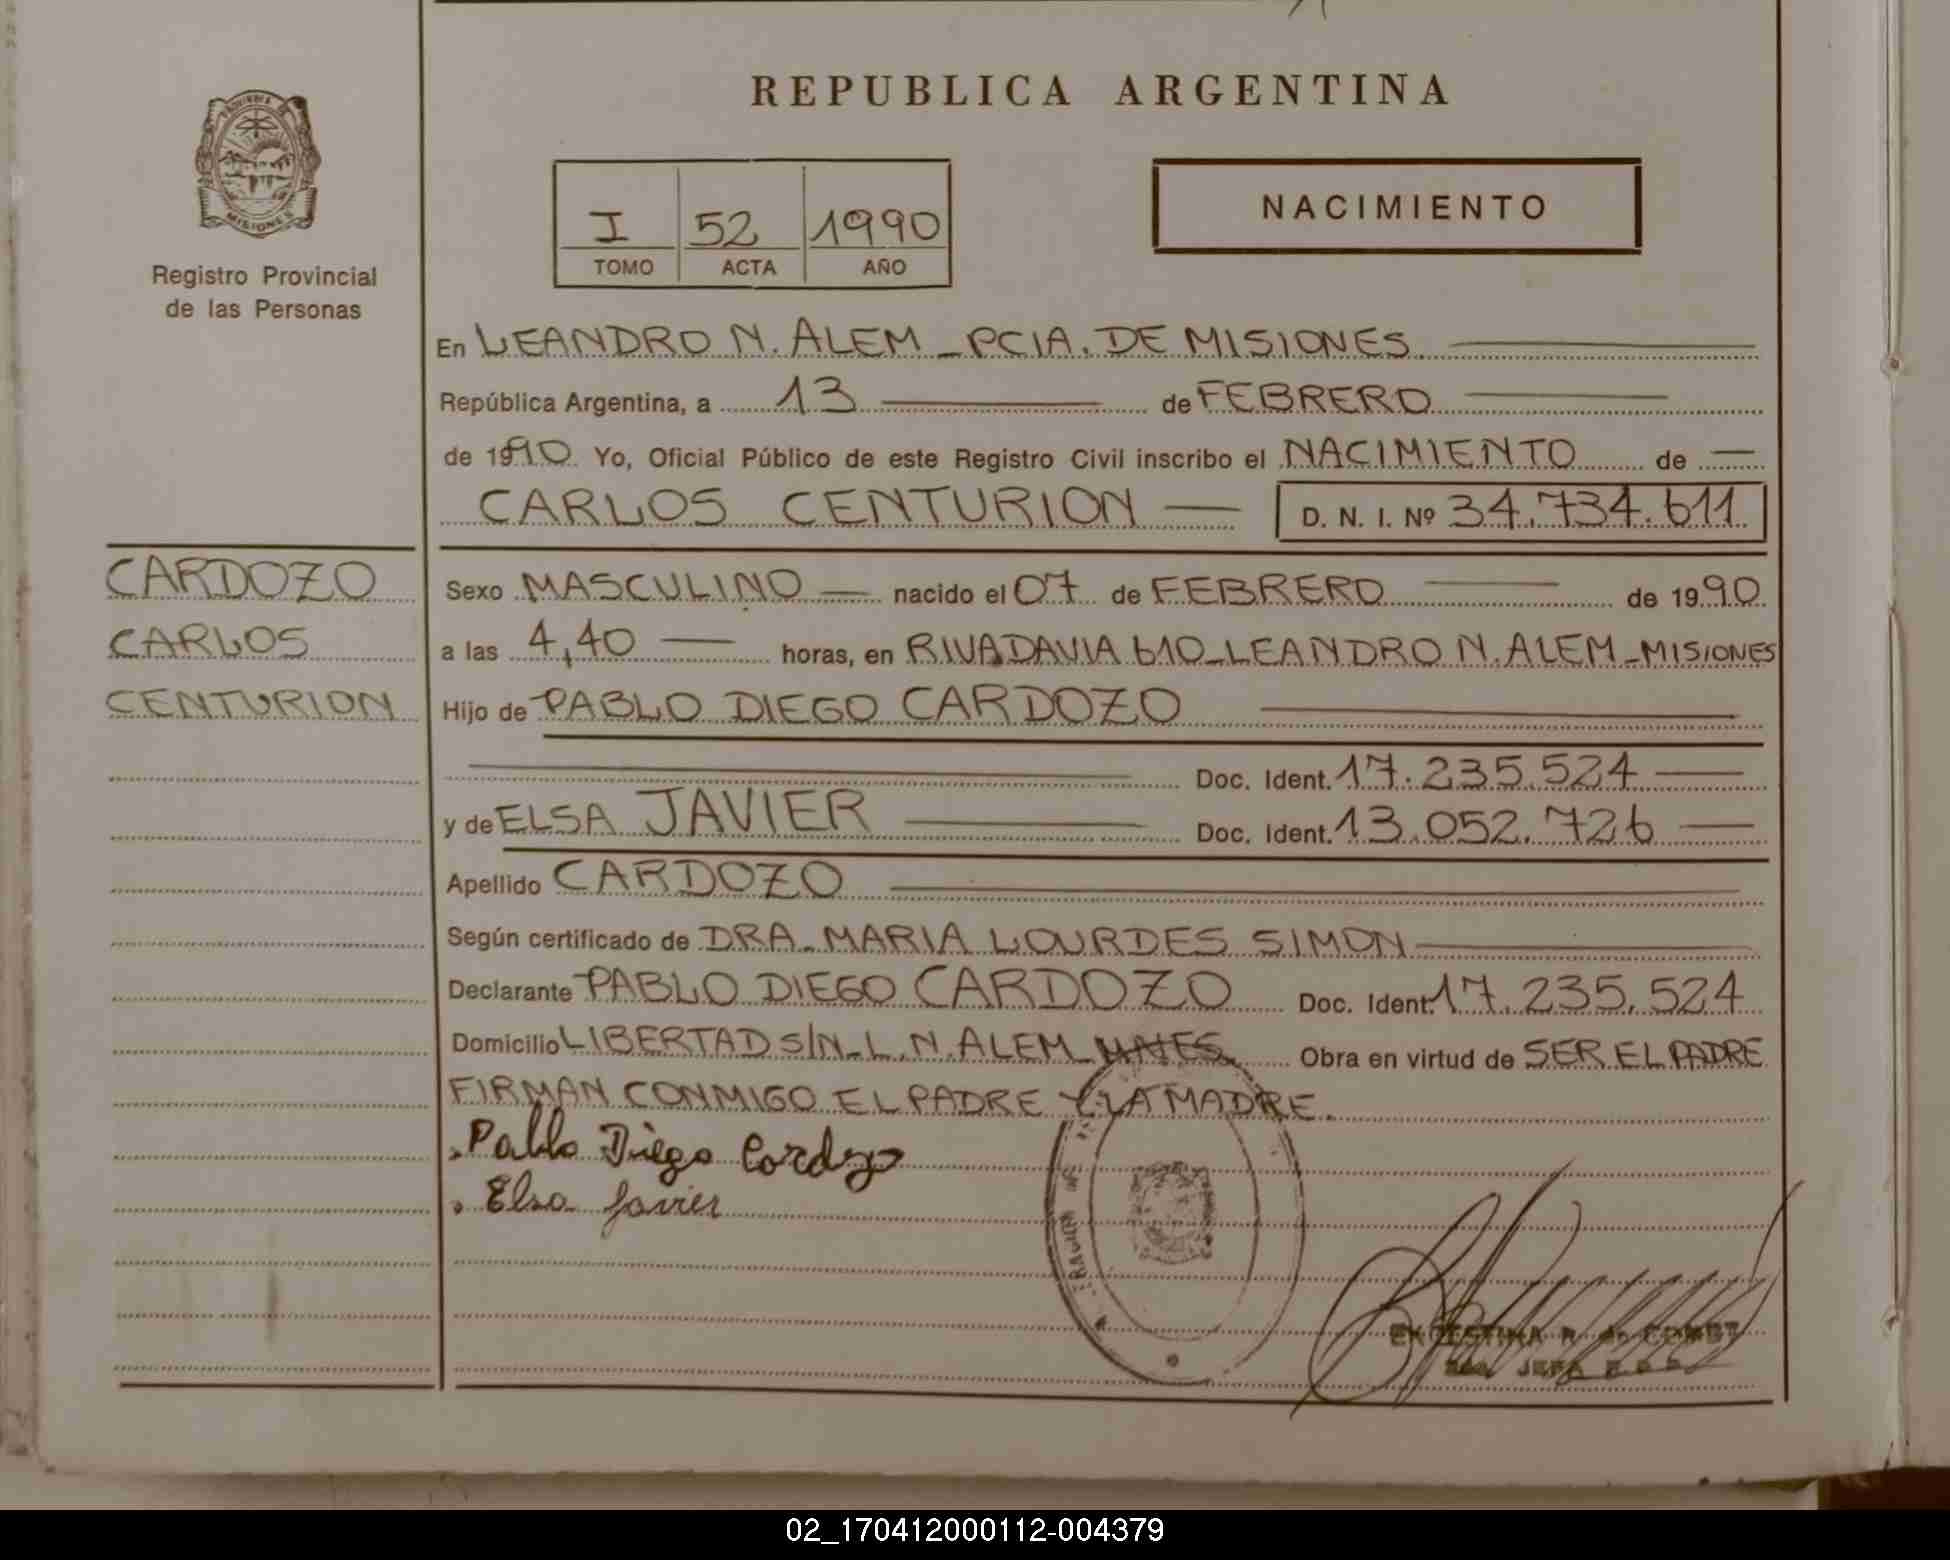 REPUBLICA ARGENTINA
PROVINCIA DE
MISIONES
Registro Provincial
de las Personas
I 52 1990
TOMO ACTA AÑO
NACIMIENTO
En LEANDRO N. ALEM - PCIA. DE MISIONES.
República Argentina, a 13 de FEBRERO
de 1990 Yo, Oficial Público de este Registro Civil inscribo el NACIMIENTO de
CARLOS CENTURION D. N. I. Nº 34.734.611
CARDOZO
CARLOS
CENTURION
Sexo MASCULINO nacido el 07 de FEBRERO de 1990
a las 4,40 horas, en RIVADAVIA 610-LEANDRO N. ALEM-MISIONES
Hijo de PABLO DIEGO CARDOZO
Doc. Ident. 17.235.524
y de ELSA JAVIER Doc. Ident. 13.052.726
Apellido CARDOZO
Según certificado de DRA. MARIA LOURDES SIMON
Declarante PABLO DIEGO CARDOZO Doc. Ident. 17.235.524
Domicilio LIBERTAD S/N-L.N. ALEM-MNES. Obra en virtud de SER EL PADRE
FIRMAN CONMIGO EL PADRE Y LA MADRE.
Pablo Diego Cardozo
Elsa Javier
JEFA
02_170412000112-004379